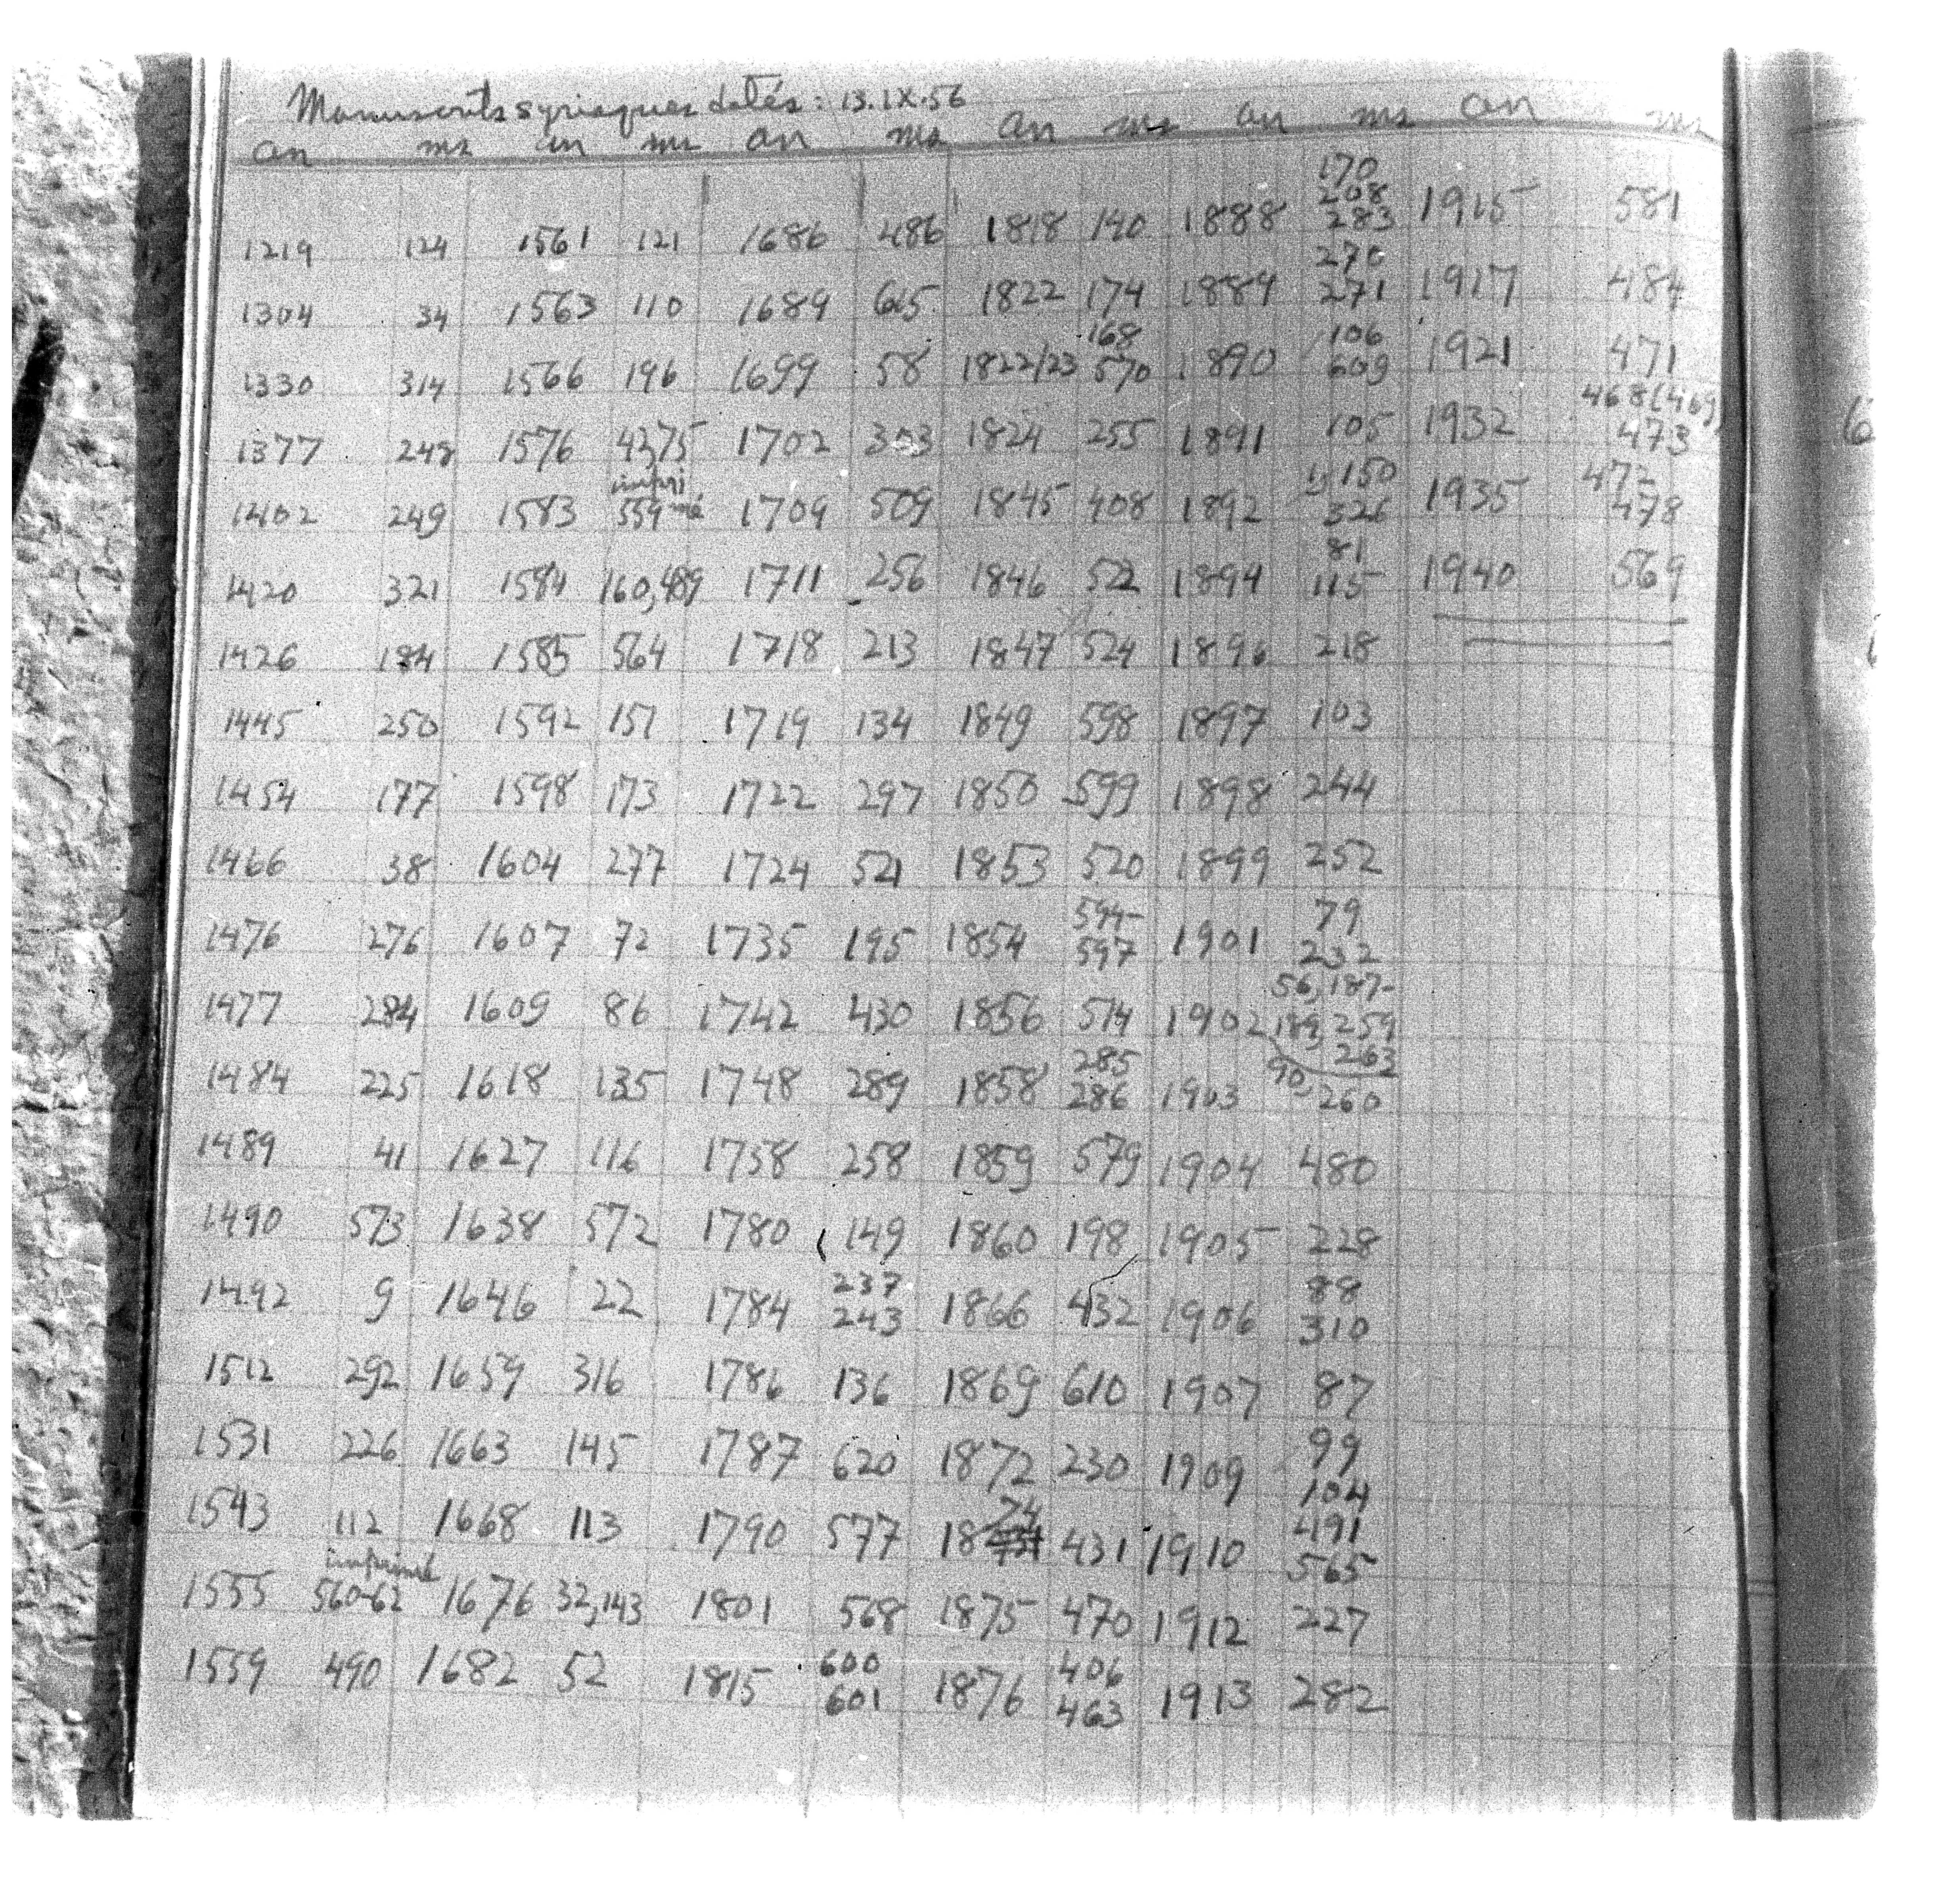 Manuscrits syriaques datés : 13.IX.56
an ms an ms an ms an ms an ms an ms
1219 124 1561 121 1686 486 1818 140 1888 170 208 283 1915 581
1304 34 1563 110 1689 615 1822 174 1889 270 271 1917 484
1330 314 1566 196 1699 58 1822/23 168 570 1890 106 609 1921 471
1377 248 1576 4375 1702 303 1824 255 1891 105 1932 468(469) 473
1402 249 1583 imprimé 559 1709 509 1845 408 1892 150 326 1935 472 478
1420 321 1584 160,489 1711 256 1846 522 1894 81 115 1940 569
1426 184 1585 564 1718 213 1847 524 1896 218
1445 250 1592 151 1719 134 1849 598 1897 103
1454 177 1598 173 1722 297 1850 599 1898 244
1466 38 1604 277 1724 521 1853 520 1899 252
1476 276 1607 72 1735 195 1854 594-597 1901 79 232
1477 284 1609 86 1742 430 1856 514 1902 56,187-189,259 263
1484 225 1618 135 1748 289 1858 285 286 1903 90, 260
1489 41 1627 116 1758 258 1859 579 1904 480
1490 573 1638 572 1780 149 1860 198 1905 228
1492 9 1646 22 1784 237 243 1866 432 1906 88 310
1512 292 1659 316 1786 136 1869 610 1907 87
1531 226 1663 145 1787 620 1872 230 1909 99 104
1543 112 1668 113 1790 577 1874 431 1910 491 565
1555 imprimé 560-62 1676 32,143 1801 568 1875 470 1912 227
1559 490 1682 52 1815 600 601 1876 406 463 1913 282